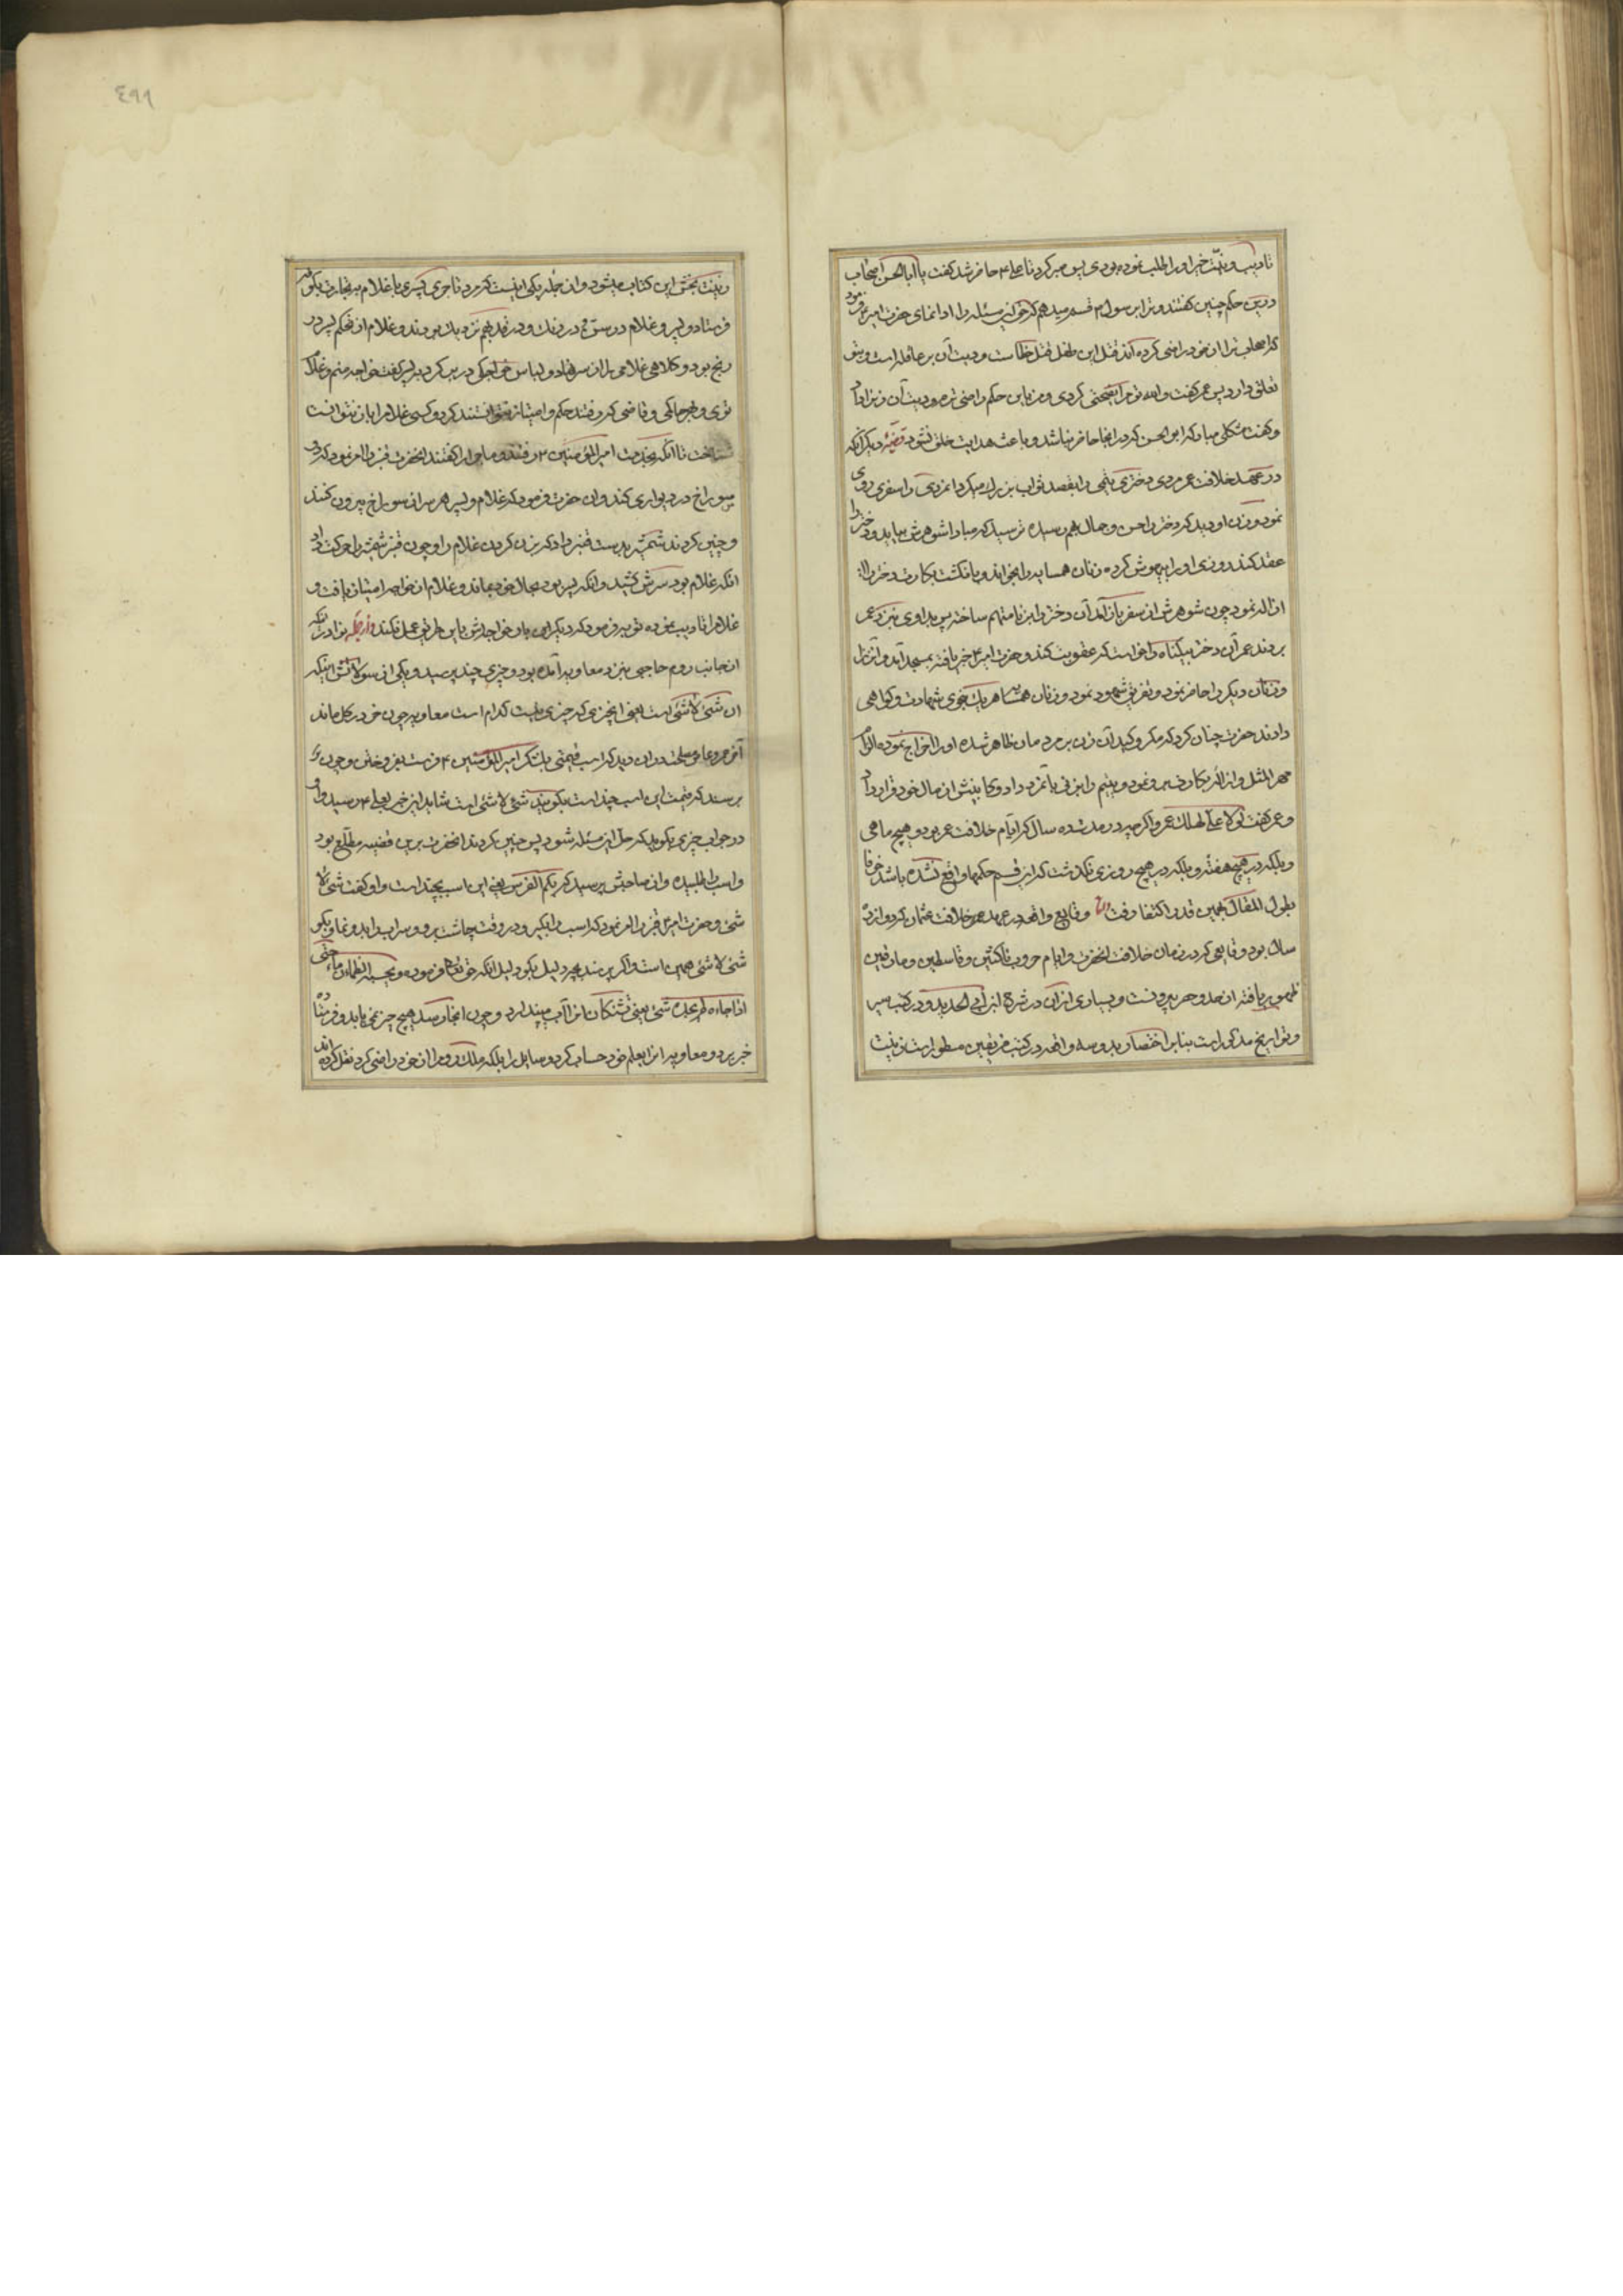 تادیب و نیّت خیر او را طلب نموده بودی پس صبر کرد تا علی ۴ حاضر شد گفت یا ابا الحسن اصحاب
درین حکم چنین گفتند و ترا برسول ۳ قسم میدهم که حق این مسئله را ادا نمای حضرت امیر ۴ فرمود
که اصحاب ترا از خود راضی کرده‌اند قتل این طفل قتل خطا است و دیت آن بر عاقله است و بتو
تعلق دارد پس عمر گفت والله تو مرا نصیحتی کردی و من باین حکم راضی شدم و دیت آن زن را داد
و گفت مشکلی مباد که ابو الحسن که در انجا حاضر نباشد و باعث هدایت خلق نشود قضیهٔ دیگر انکه
در عهد خلافت عمر مردی دختری یتیمی را بقصد ثواب بزرك میکرد انمردی را سفری روی
نمود و زن او دید که دختر را حسن و جمال بهم رسیده ترسید که مبادا شوهرش بیاید و دختر را
عقد کند روزی او را بیهوش کرده زنان همسایه را بخواند و بانگشت بکارت دختر را
ازاله نمود چون شوهرش از سفر باز آمد آن دختر را بزنا متهم ساخته پس بداوی بنزد عمر
بردند عمر آن دختر بیگناه را خواست که عقوبت کند و حضرت امیر ۴ خبر یافته بمسجد آمد و آنزن را
و زنان دیگر را حاضر نمود و تفریق شهود نمود و زنان همسایه هر یك بنحوی شهادت و گواهی
دادند حضرت چنان کرد که مکر و کید آن زن بر مردمان ظاهر شده او را اخراج نموده الزام
مهر المثل و ازاله بکارت نمود و یتیم را بزنی بآنمرد داد و کابینش از مال خود قرار داد
و عمر گفت لولا علی لهلك عمر و اگرچه در مدت ده سال که ایام خلافت عمر بود و هیچ ماهی
و بلکه در هیچ هفته و بلکه در هیچ روزی نگذشت که ازین قسم حکمها واقع نشده باشد خوفا
بطول المقال بهمین قدر اکتفا رفت و وقایع واقعه در عهد خلافت عثمان که دوازده
سال بود و وقایعی که در زمان خلافت انحضرت و ایام حروب ناکثین و قاسطین و مارقین
ظهور یافته از حد و حصر بیرونست و بسیاری از ان در شرح ابن ابی الحدید و در کتب سیر
و تواریخ مذکور است بنابر اختصار بدو سه واقعه در کتب فریقین مسطور است زینت
٤٩٩
زینت بخش این کتاب میشود و از جمله یکی اینست که مرد تاجری پسری با غلام به تجارت بکوفه
فرستاد و پسر و غلام در سن و در رنك و در قد بهم نزدیك بودند و غلام از تحکم پسر در
رنج بود و کلاهی غلامی را از سر نهاد و لباس خواجگی در بر کرد پسر را گفت خواجه منم و غلام
توی و هر حاکمی و قاضی که رفتند حکم و امتیاز نتوانستند کرد و کسی غلام را باز نتوانست
شناخت تا انکه بخدمت امیر المؤمنین ۴ رفتند و ماجرا را گفتند انحضرت قنبر را امر نمود که دو
سوراخ در دیواری کند و ان حضرت فرمود که غلام و پسر هر دو سر از سوراخ بیرون کنند
و چنین کردند شمشیر بدست قنبر داد که بزن گردن غلام را و چون قنبر شمشیر را حرکت داد
انکه غلام بود سرش کشید و انکه پسر بود بحال خود بماند و غلام از خواجه امتیاز یافت و
غلام را تادیب نموده توبه فرمود که دیگر این با خواجه‌اش باین طریق عمل نکند و از جمله نوادر انکه
از جانب روم حاجبی بنزد معاویه آمده بود و چیزی چند پرسید و یکی از سوالاتش اینکه
ان شئ لا شئ است یعنی انچیزی که چیزی نیست کدام است معاویه چون خر در گل ماند
آخر عمرو عاص مصلحت در ان دید که اسب قیمتی بلشکر امیر المؤمنین ۴ فرستد بفروختن و چون
پرسند که قیمت این اسب چند است بگویند شئ لا شئ است شاید این خبر بعلی ۴ رسید و او
در جواب چیزی بگوید که حل این مسئله شود پس چنین کردند انحضرت برین قضیه مطلع بود
و اسب را طلبیده و از صاحبش پرسید که بکم الفرس یعنی این اسب بچند است و او گفت شئ لا
شئ و حضرت امیر ۴ قنبر را امر نمود که اسب را بگیر و در وقت چاشت برو و سراب را بدو نما و بگو
شئ لا شئ همین است و اگر پرسند بچه دلیل بگو بدلیل انکه حق تعالی فرموده و یحسبه الظمآن ماء حتی
اذا جاءه لم یجده شئ یعنی تشنگان انرا آب میپندارد و چون انجا رسد هیچ چیز نمی‌یابد و فرستاده
خبر برد و معاویه انرا بعلم خود حساب کرد و سایل را بلکه ملك روم را از خود راضی کرد نقل کرده‌اند